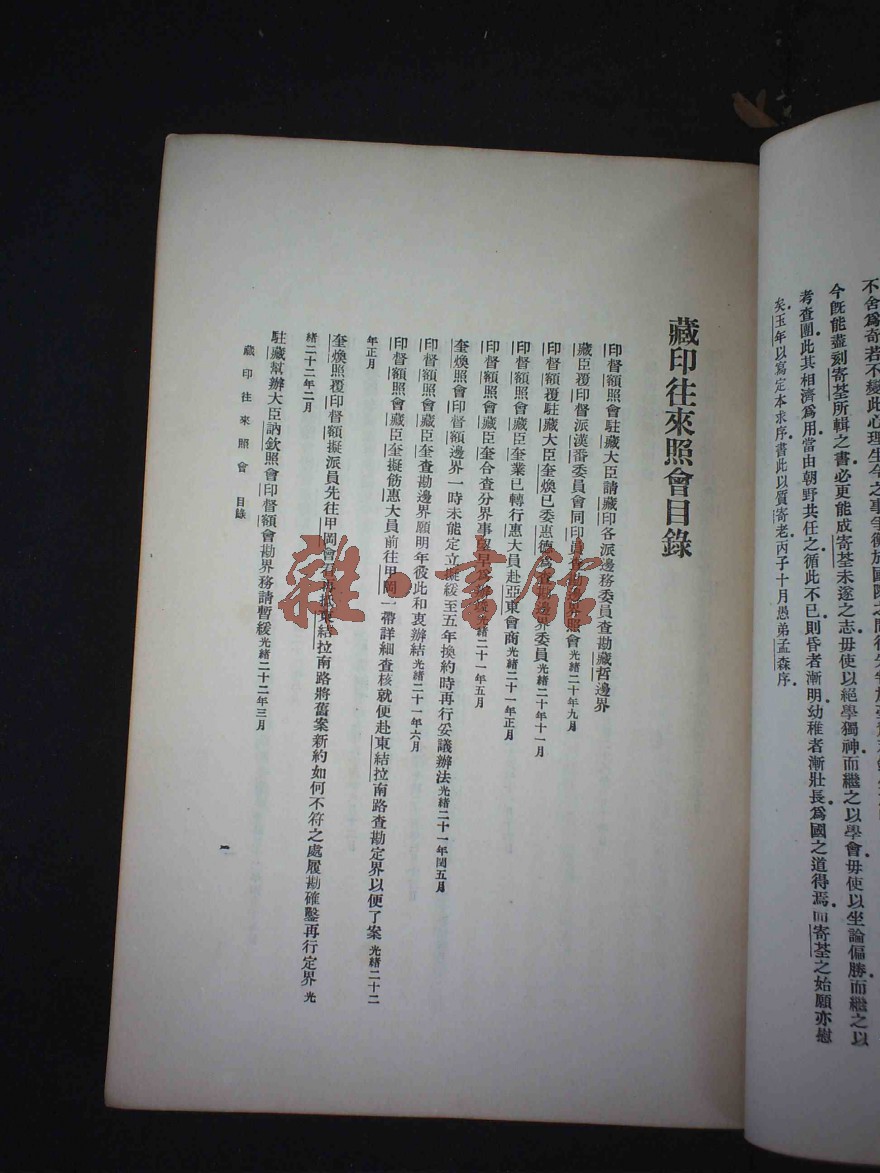 不舍爲奇若不變此心理生今之事爭衡於國際之間
今旣能盡刻寄荃所輯之書必更能成寄荃未遂之志毋使以絕學獨神而繼之以學會毋使以坐論偏勝而繼之以
考查團此其相濟爲用當由朝野共任之循此不已則昏者漸明幼稚者漸壯長爲國之道得焉而寄荃之始願亦慰
矣玉年以寫定本求序書此以質寄老丙子十月愚弟孟森序
藏印往來照會目錄
印督額照會駐藏大臣請藏印各派邊務委員查勘藏哲邊界
藏臣覆印督派漢番委員會同印員查勘邊界照會光緒二十年九月
印督額覆駐藏大臣奎煥已委惠德爲查批邊界委員光緒二十年十一月
印督額照會藏臣奎業已轉行惠大員赴亞東會商光緒二十一年正月
印督額照會藏臣奎合查分界事望早爲辦竣光緒二十一年五月
奎煥照會印督額邊界一時未能定立擬緩至五年換約時再行妥議辦法光緒二十一年閏五月
印督額照會藏臣奎查勘邊界願明年彼此和衷辦結光緒二十一年六月
印督額照會藏臣奎擬飭惠大員前往甲岡一帶詳細查核就便赴東結拉南路查勘定界以便了案光緒二十二
年正月
奎煥照覆印督額擬派員先往甲岡會勘再抵東結拉南路將舊案新約如何不符之處履勘確鑿再行定界光
緒二十二年二月
駐藏幫辦大臣訥欽照會印督額會勘界務請暫緩光緒二十二年三月
藏印往來照會 目錄
一
雜·書館